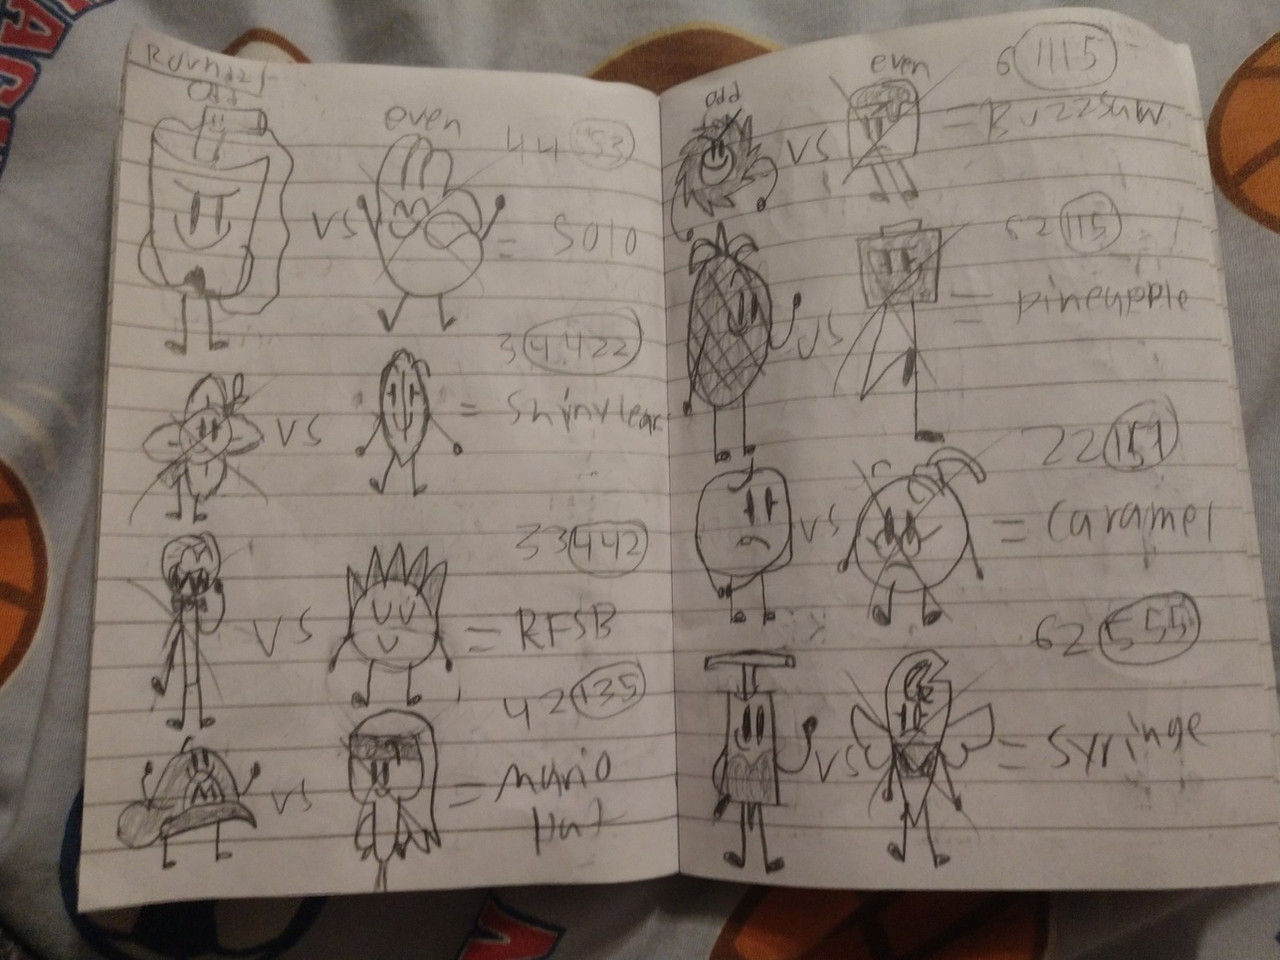 Round 2
odd
even
44 353
VS
= Solo
3 4.422
VS
= Shiny leaf
33 442
VS
= RFSB
42 135
VS
= Mario
Hat
odd
even
6 1115
VS
= Buzzsaw
62 115
VS
= pineapple
22 151
VS
= Caramel
62 555
VS
= Syringe